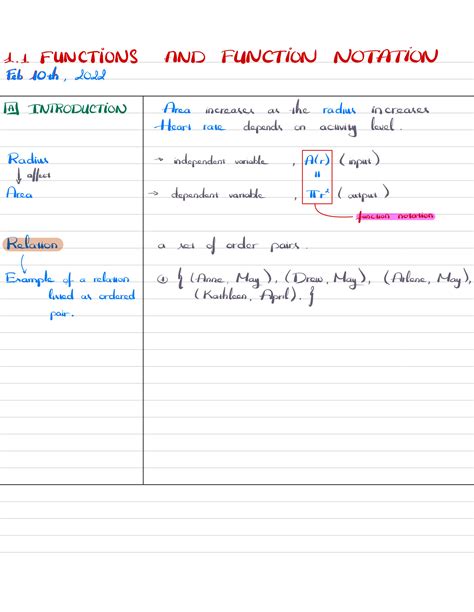 1.1 FUNCTIONS AND FUNCTION NOTATION
Feb 10th, 2022
A INTRODUCTION
Area increases as the radius increases
Heart rate depends on activity level.
Radius
→ independent variable , A(r) (input)
↓ affect
=
Area
→ dependent variable , πr² (output)
function notation
Relation
a set of order pairs.
Example of a relation
listed as ordered
pair.
{ (Anne, May), (Drew, May), (Arlene, May),
(Kathleen, April). }